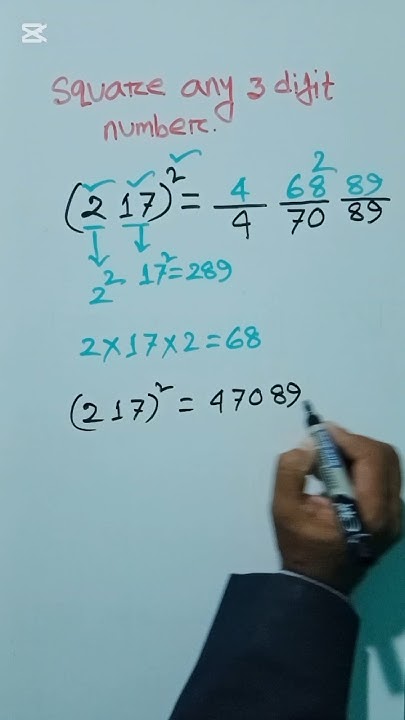 Square any 3 digit
number.
(2 17)² = 4 68² 89
4 70 89
2² 17² = 289
2×17×2=68
(217)² = 47089